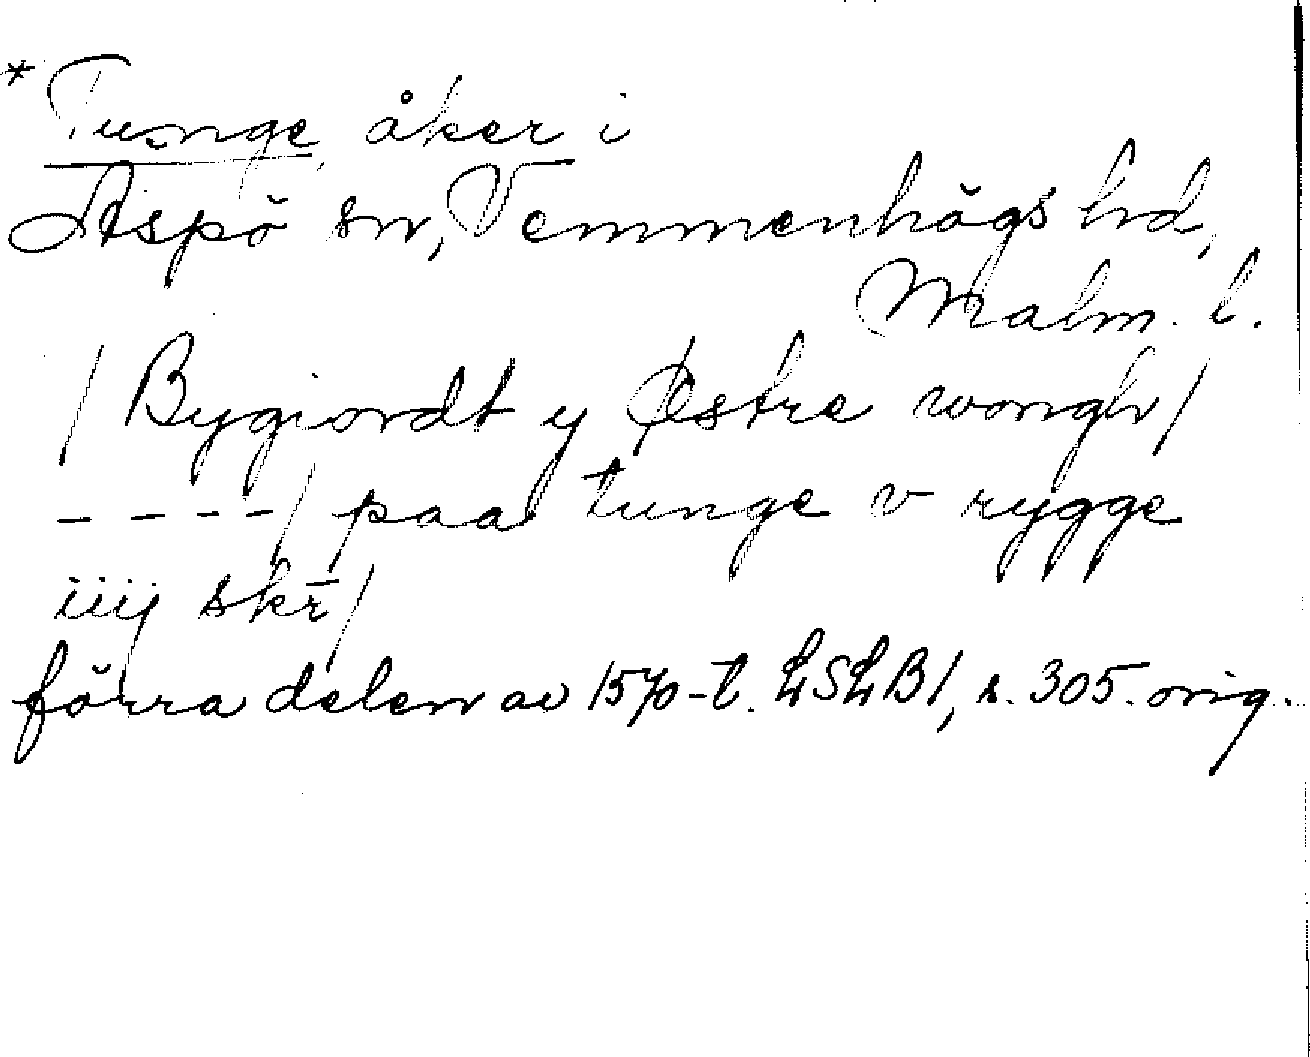 *Tunge, åker i
Äspö sn, Vemmenhögs hd,
Malm. l.
/ Bygiordt y Østre wongh /
---- / paa tunge v rygge
iiij skr̄ /
förra delen av 1570-t. LSLB1, s. 305. orig.